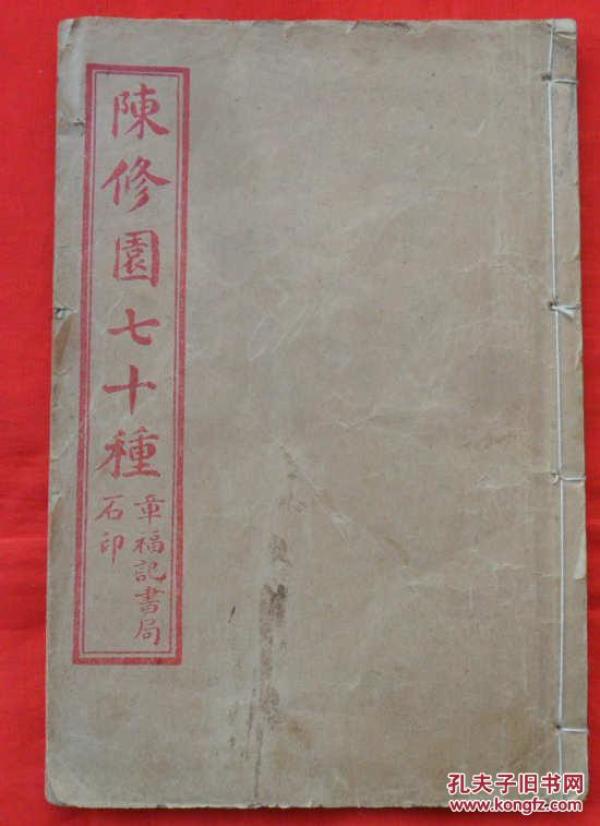 陳修園七十種
章福記書局
石印
孔夫子旧书网
www.kongfz.com